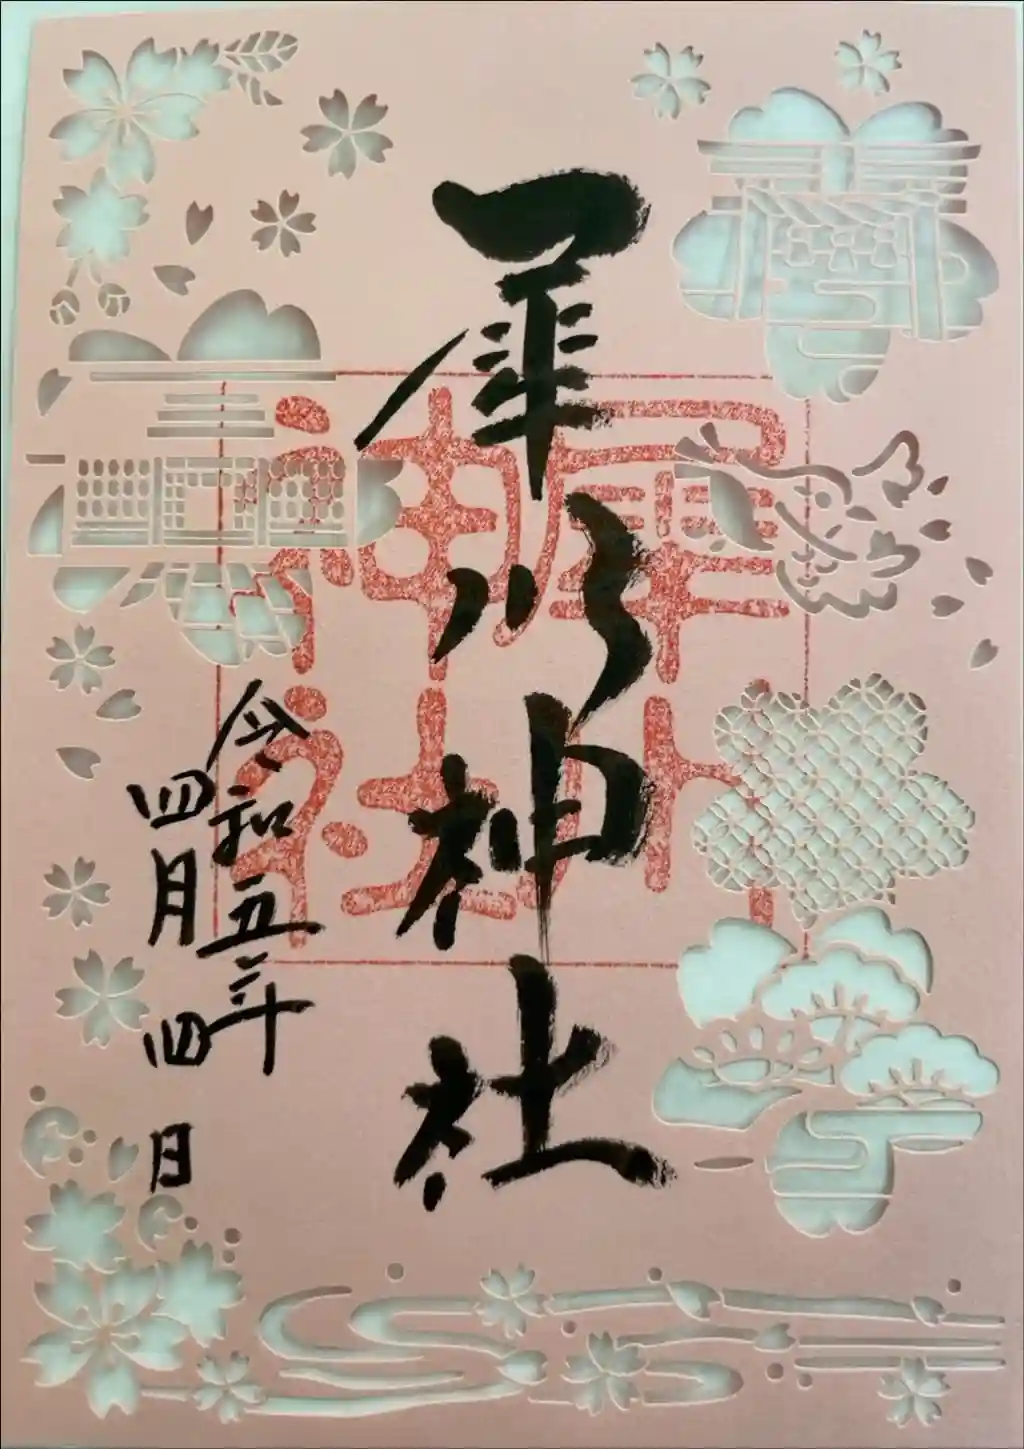 犀川神社
犀川
神社
令和五年
四月四日